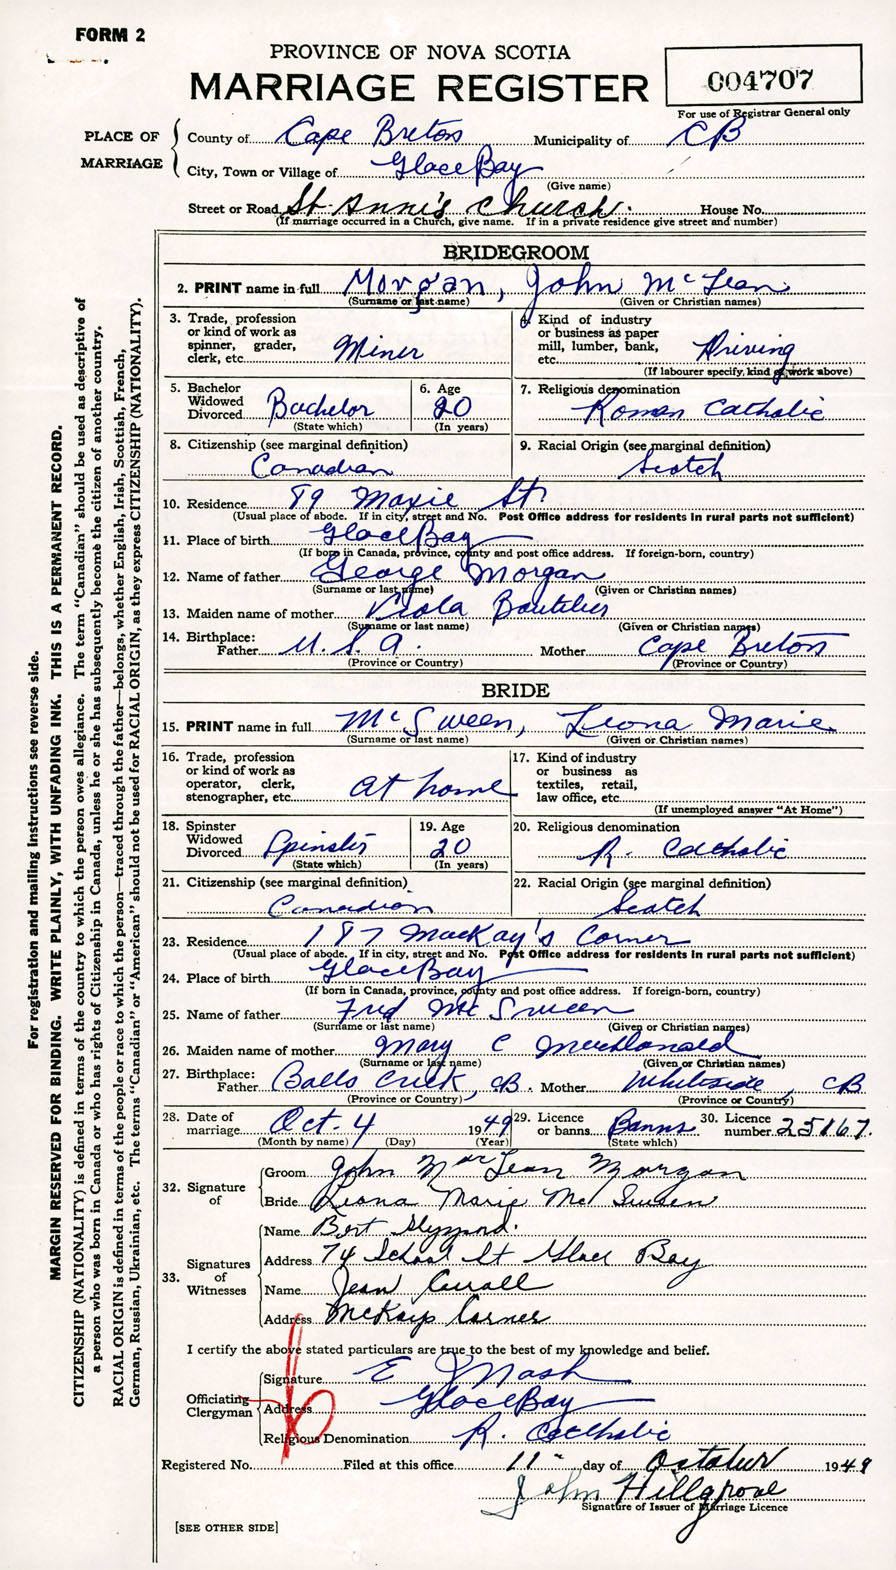 FORM 2
PROVINCE OF NOVA SCOTIA
MARRIAGE REGISTER
004707
For use of Registrar General only
PLACE OF MARRIAGE
County of Cape Breton Municipality of CB
City, Town or Village of Glace Bay
(Give name)
Street or Road St. Anne's Church. House No.
(If marriage occurred in a Church, give name. If in a private residence give street and number)
BRIDEGROOM
2. PRINT name in full Morgan, John McLean
(Surname or last name) (Given or Christian names)
3. Trade, profession or kind of work as spinner, grader, clerk, etc. Miner
4. Kind of industry or business as paper mill, lumber, bank, etc. Driving
(If labourer specify, kind of work above)
5. Bachelor Widowed Divorced Bachelor
(State which)
6. Age 20
(In years)
7. Religious denomination Roman Catholic
8. Citizenship (see marginal definition) Canadian
9. Racial Origin (see marginal definition) Scotch
10. Residence 89 Maxie St.
(Usual place of abode. If in city, street and No. Post Office address for residents in rural parts not sufficient)
11. Place of birth Glace Bay
(If born in Canada, province, county and post office address. If foreign-born, country)
12. Name of father George Morgan
(Surname or last name) (Given or Christian names)
13. Maiden name of mother Viola Boutilier
(Surname or last name) (Given or Christian names)
14. Birthplace: Father U.S.A. Mother Cape Breton
(Province or Country) (Province or Country)
BRIDE
15. PRINT name in full McSween, Leona Marie
(Surname or last name) (Given or Christian names)
16. Trade, profession or kind of work as operator, clerk, stenographer, etc. At home
17. Kind of industry or business as textiles, retail, law office, etc.
(If unemployed answer "At Home")
18. Spinster Widowed Divorced Spinster
(State which)
19. Age 20
(In years)
20. Religious denomination R. Catholic
21. Citizenship (see marginal definition) Canadian
22. Racial Origin (see marginal definition) Scotch
23. Residence 187 MacKay's Corner
(Usual place of abode. If in city, street and No. Post Office address for residents in rural parts not sufficient)
24. Place of birth Glace Bay
(If born in Canada, province, county and post office address. If foreign-born, country)
25. Name of father Fred McSween
(Surname or last name) (Given or Christian names)
26. Maiden name of mother Mary C MacDonald
(Surname or last name) (Given or Christian names)
27. Birthplace: Father Balls Creek, CB. Mother Whiteside, CB
(Province or Country) (Province or Country)
28. Date of marriage Oct. 4 1949
(Month by name) (Day) (Year)
29. Licence or banns Banns
(State which)
30. Licence number 25167.
32. Signature of
Groom John MacLean Morgan
Bride Leona Marie McSween
33. Signatures of Witnesses
Name Bert
Address 74 School St Glace Bay
Name Jean
Address McKays Corner
I certify the above stated particulars are true to the best of my knowledge and belief.
Officiating Clergyman
Signature E Nash
Address Glace Bay
Religious Denomination R. Catholic
Registered No. Filed at this office 11 day of October 1949
John Hillgrove
Signature of Issuer of Marriage Licence
[SEE OTHER SIDE]
For registration and mailing instructions see reverse side.
MARGIN RESERVED FOR BINDING. WRITE PLAINLY, WITH UNFADING INK. THIS IS A PERMANENT RECORD.
CITIZENSHIP (NATIONALITY) is defined in terms of the country to which the person owes allegiance. The term "Canadian" should be used as descriptive of
a person who was born in Canada or who has rights of Citizenship in Canada, unless he or she has subsequently become the citizen of another country.
RACIAL ORIGIN is defined in terms of the people or race to which the person—traced through the father—belongs, whether English, Irish, Scottish, French,
German, Russian, Ukrainian, etc. The terms "Canadian" or "American" should not be used for RACIAL ORIGIN, as they express CITIZENSHIP (NATIONALITY).